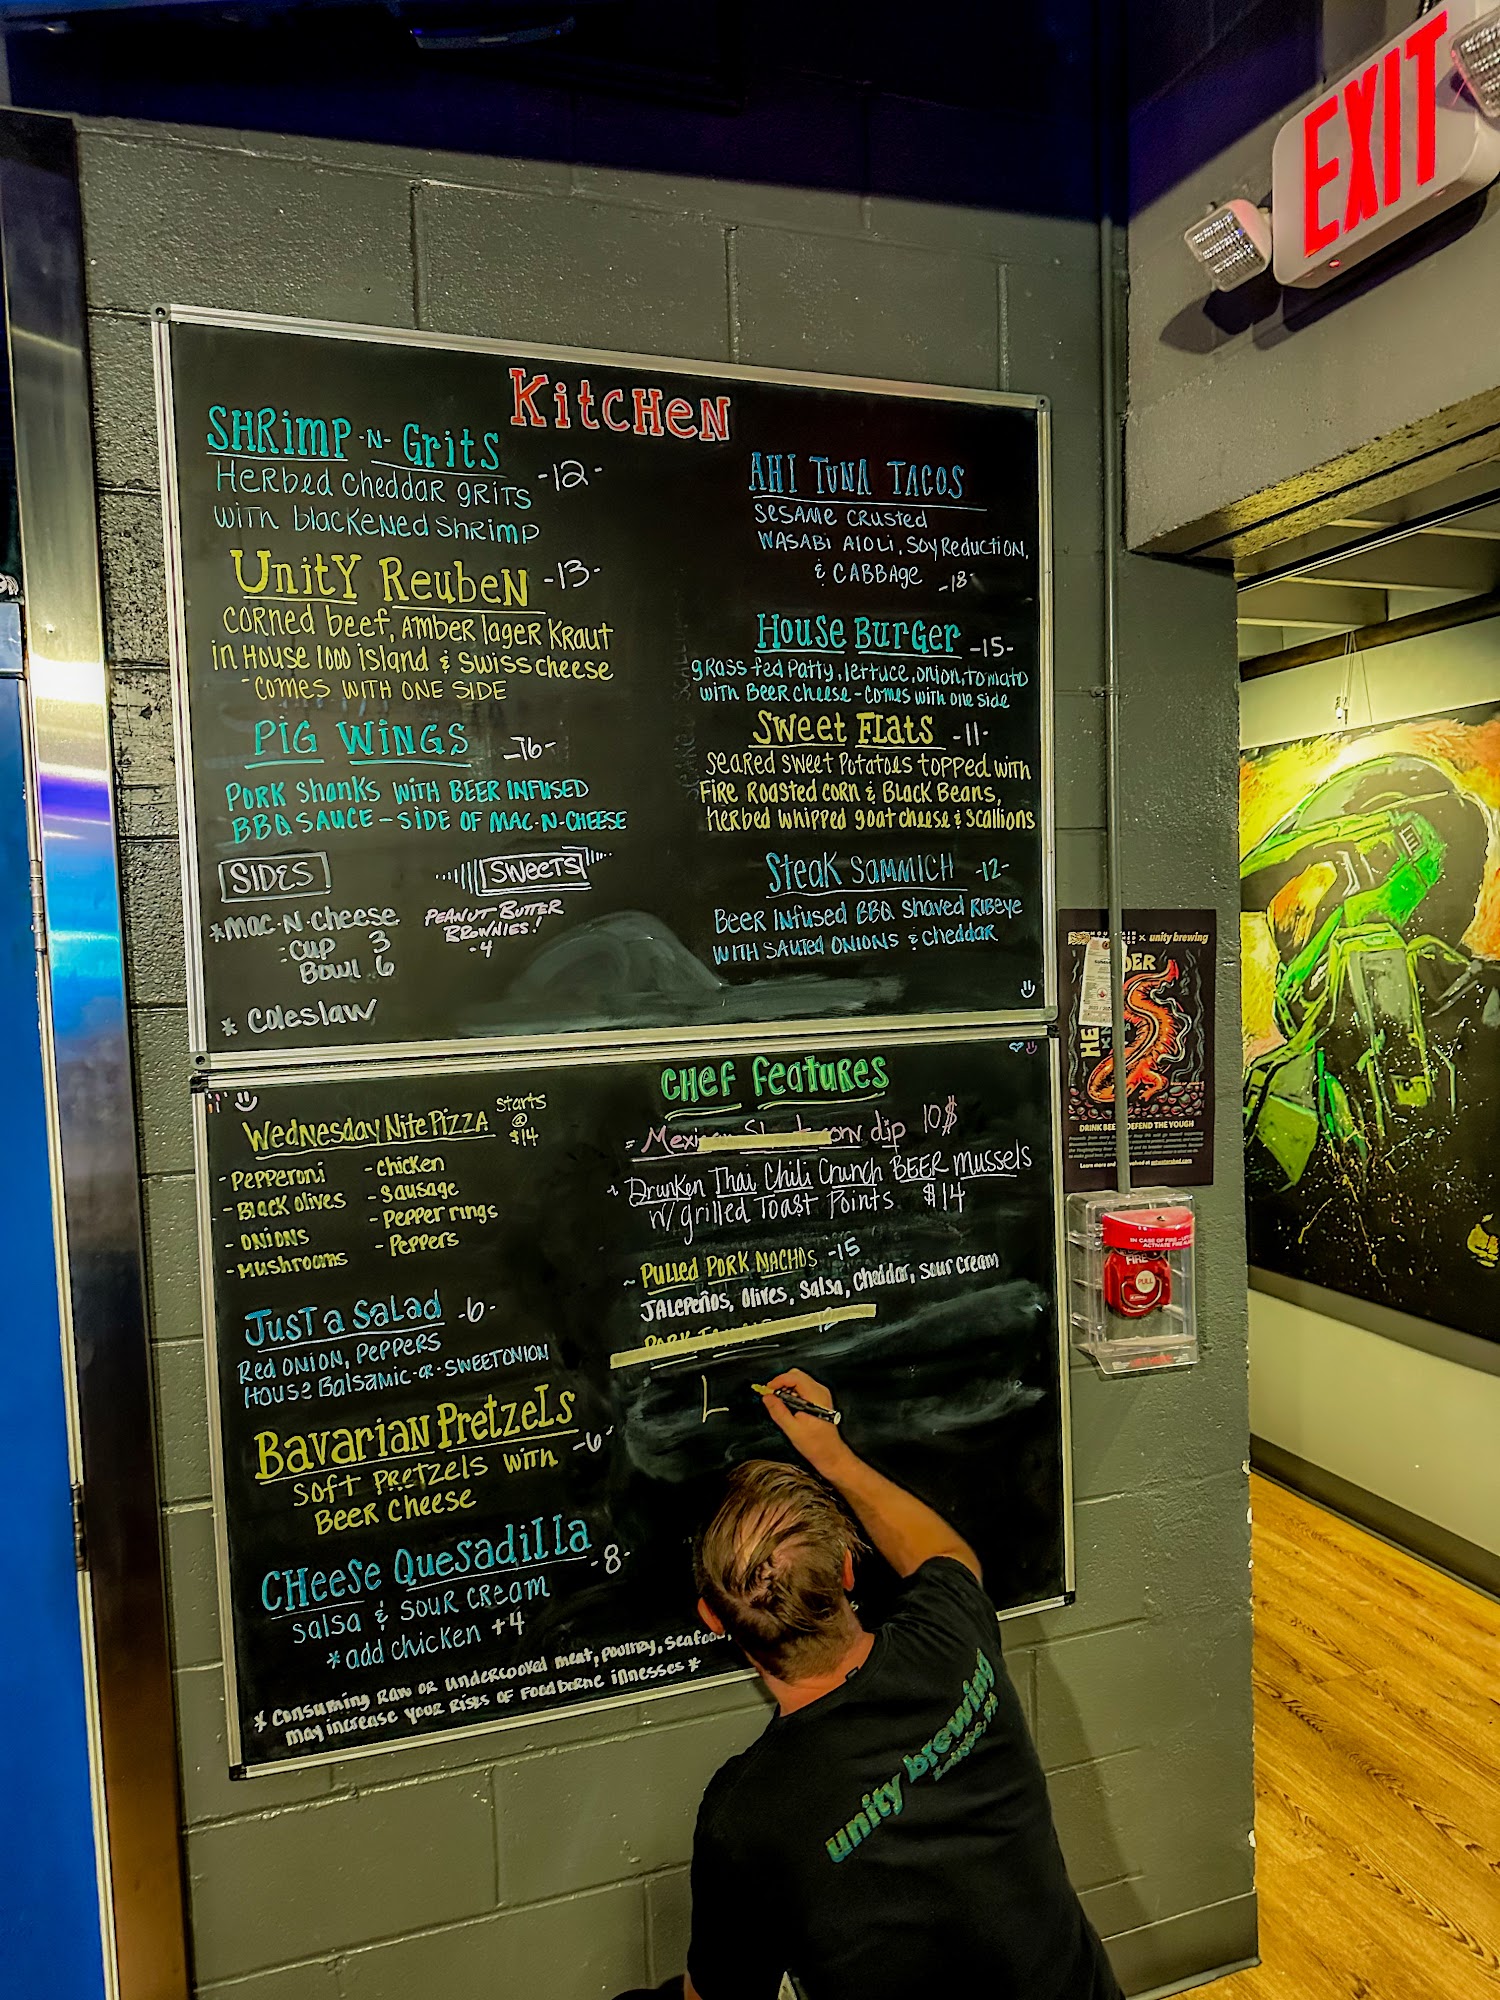 EXIT
KitCHeN
SHRimP -N- GritS
-12-
HeRbed cheddaR gRiTs
with blackened shrimp
UnitY ReubeN -13-
CORNed beef, AmbeR lageR KRaut
in House 1000 island & swiss cheese
- comes WITH ONE SIDE
PIG WINGS -16-
PORK Shanks WITH BEER INFUSED
BBQ SAUCE - SIDE OF MAC-N-CHEESE
SIDES
*MAC-N-Cheese
-cup 3
Bowl 6
* Coleslaw
SWeeTS
PEANUT-BUTTER
BROWNIES!
-4
AHI TUNA TACOS
SESAME CRUSTED
WASABI AIOLI, SOY REDUCTION,
& CABBAge -18-
House BurGer -15-
gRass-fed Patty, lettuce, onion, tomato
with BEER cheese - comes with one side
Sweet FLats -11-
Seared sweet Potatoes topped with
FIRE Roasted corn & Black Beans,
herbed whipped goat cheese & scallions
Steak SAMMICH -12-
BEER INfused BBQ Shaved RIBEYE
WITH SAUTED ONIONS & Cheddar
Wednesday Nite PIZZA
Starts
@
$14
- PEPPERONI
- Black olives
- ONIONS
- MushRooms
- Chicken
- Sausage
- Pepper rings
- Peppers
JusT a SaLad -6-
Red ONION, PEPPERS
HOUSE BaLSamic -OR- SWEET ONION
BavaRiaN PretzeLs
-6-
SOFT PRETZELS WITH
BEER CHEESE
CHeeSe QuesadiLLa
-8-
Salsa & SOUR CREAM
* add chicken +4
* Consuming RAW OR undercooked meat, poultry, Seafood,
may increase your Risks of Foodborne illnesses *
CHeF FeatuRes
dip 10$
Drunken Thai Chili Crunch BEER Mussels
w/ grilled Toast Points $14
~ PULLed PORK NACHOS -15
JALEPEÑOS, OLIVES, Salsa, Cheddar, Sour Cream
L
x unity brewing
DRINK BEER, DEFEND THE YOUGH
FIRE
PULL
unity brewing